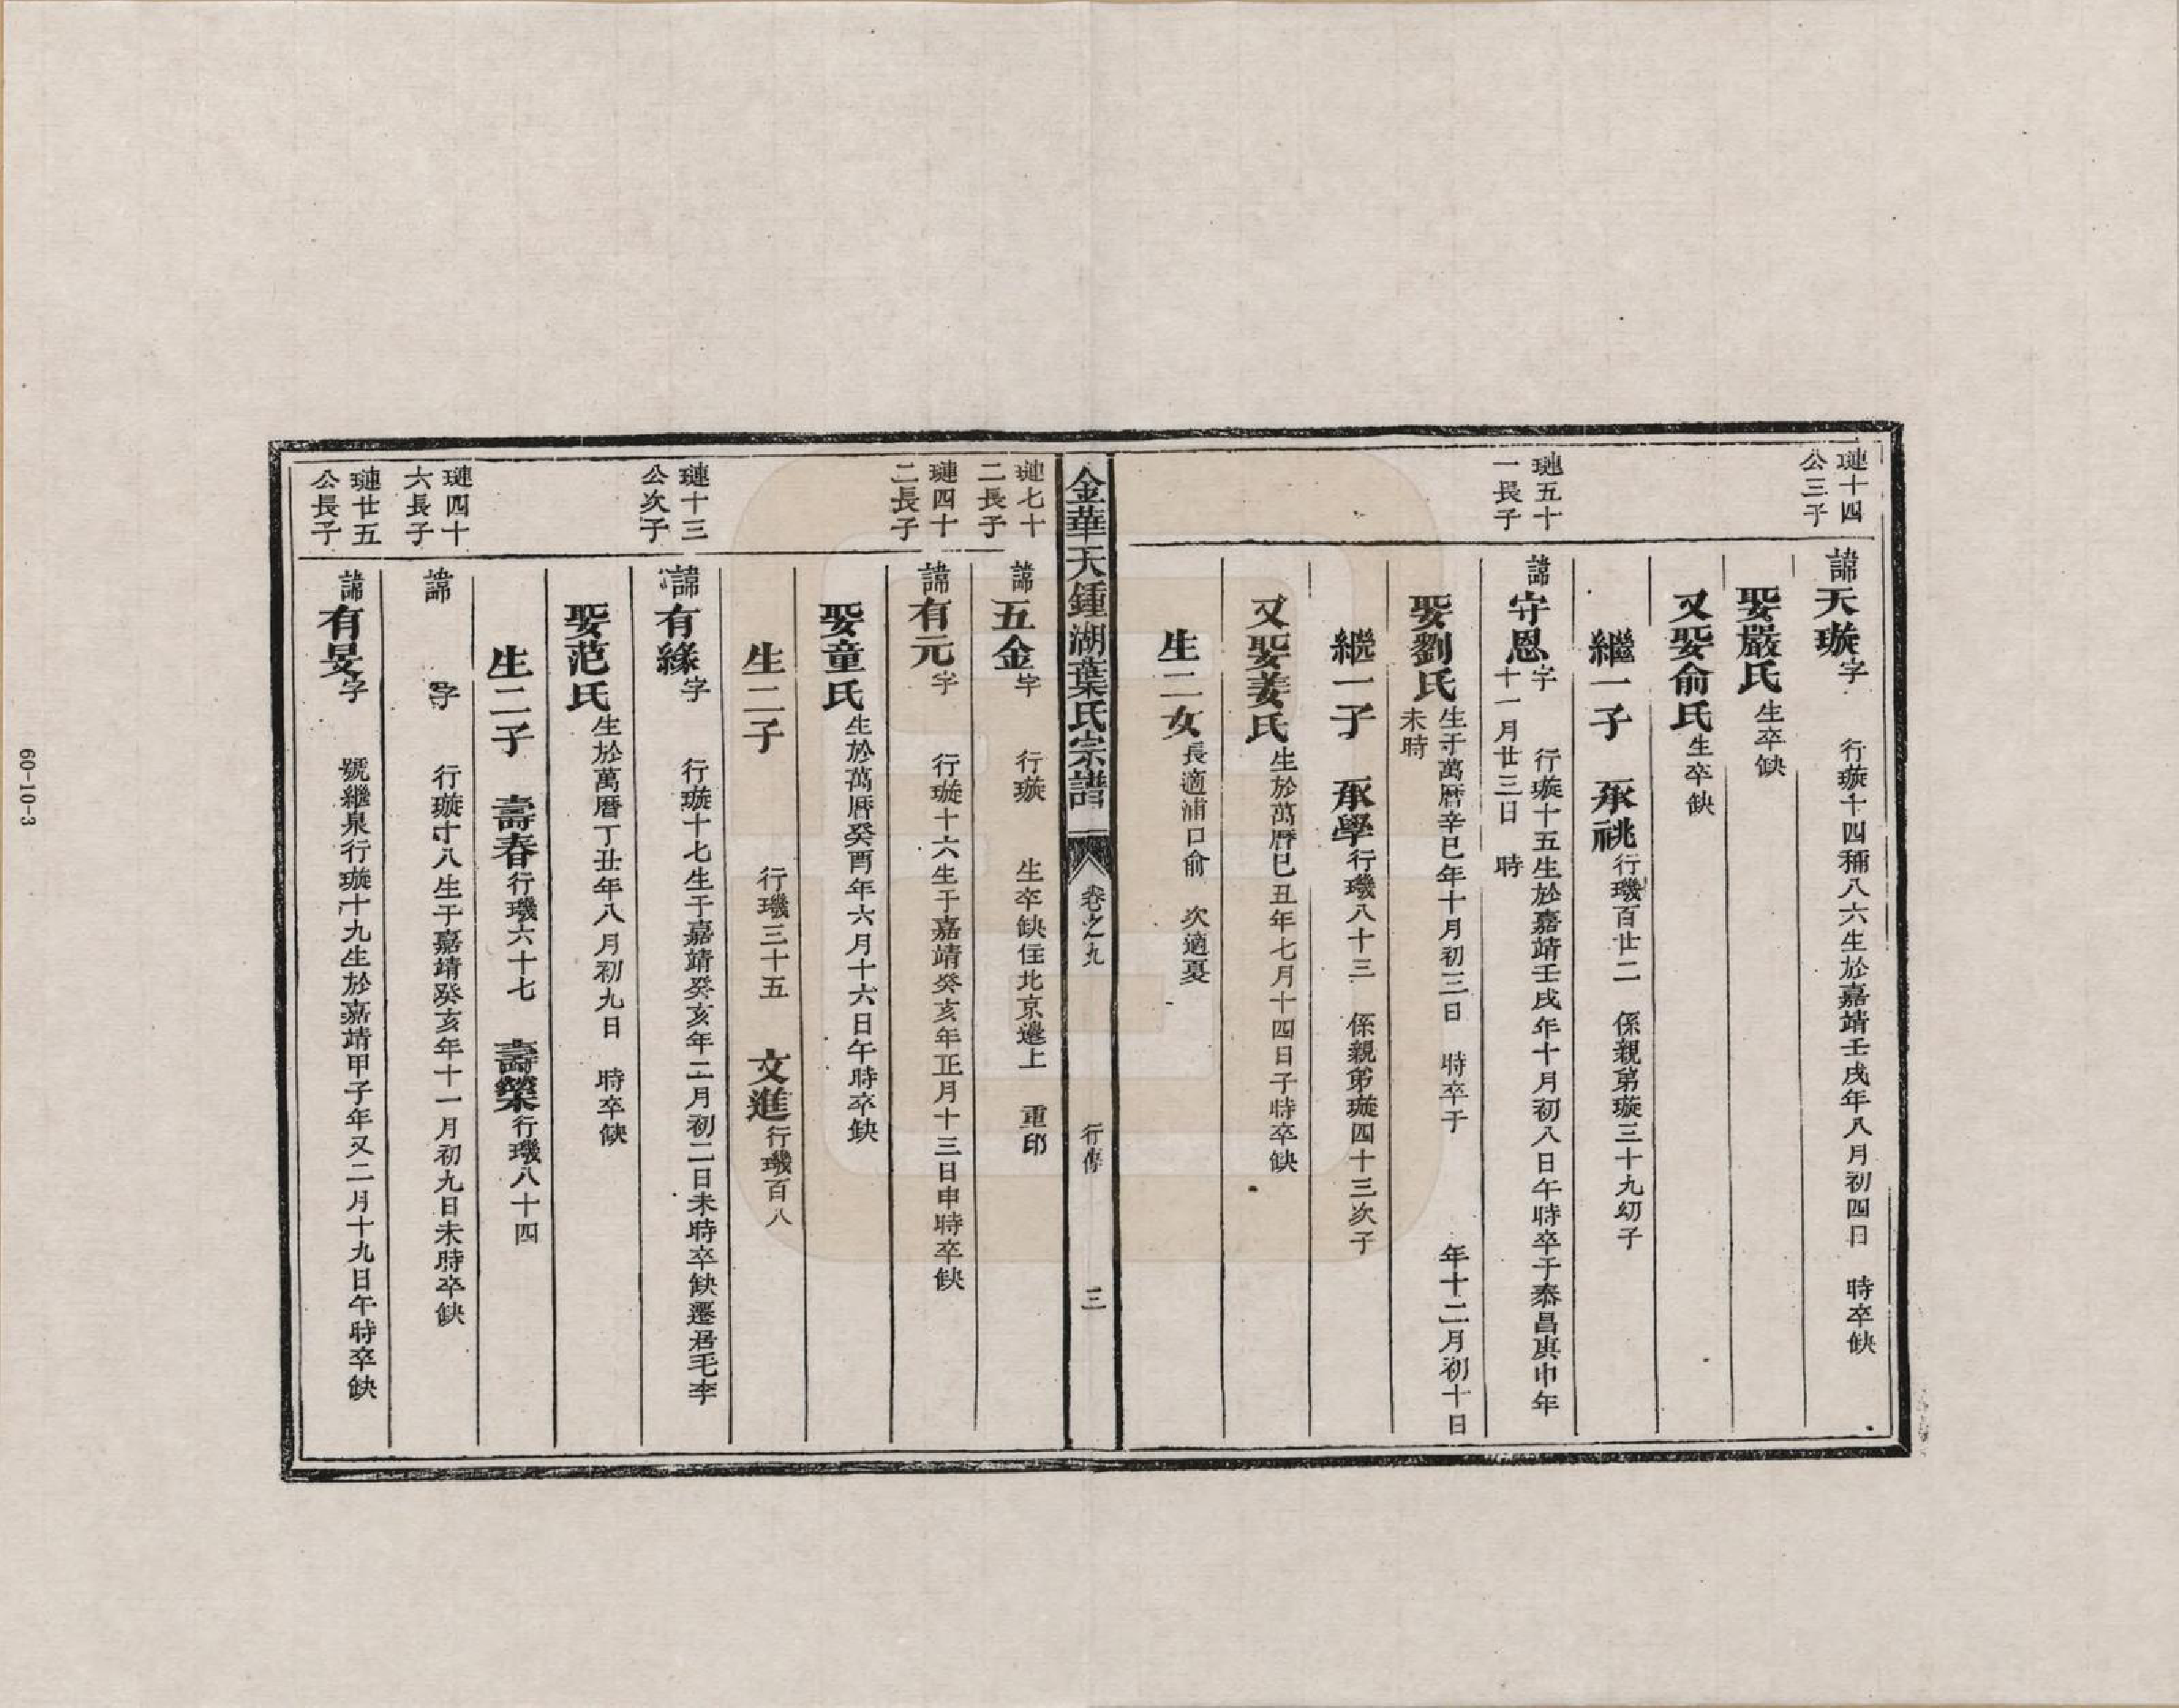 璉十四
公三子
諱天璇字　行璇十四稱八六生於嘉靖壬戌年八月初四日　時卒缺
娶嚴氏生卒缺
又娶俞氏生卒缺
繼一子　承祧行璣百廿二　係親弟璇三十九幼子
璉五十
一長子
諱守恩字　行璇十五生於嘉靖壬戌年十月初八日午時卒于泰昌庚申年
十一月廿三日　時
娶劉氏生于萬曆辛巳年十月初三日　時卒于　年十二月初十日
未時
繼一子　承學行璣八十三　係親弟璇四十三次子
又娶姜氏生於萬曆己丑年七月十四日子時卒缺
生二女長適浦口俞　次適夏
金華天鍾湖葉氏宗譜　卷之九　行傳　三
璉七十
二長子
諱五金字　行璇　生卒缺住北京邊上　重印
璉四十
二長子
諱有元字　行璇十六生于嘉靖癸亥年正月十三日申時卒缺
娶童氏生於萬曆癸酉年六月十六日午時卒缺
生二子　行璣三十五　文進行璣百八
璉十三
公次子
諱有緣字　行璇十七生于嘉靖癸亥年二月初二日未時卒缺遷居毛李
娶范氏生於萬曆丁丑年八月初九日　時卒缺
生二子　壽春行璣六十七　壽榮行璣八十四
璉四十
六長子
諱　字　行璇十八生于嘉靖癸亥年十一月初九日未時卒缺
璉廿五
公長子
諱有旻字　號繼泉行璇十九生於嘉靖甲子年又二月十九日午時卒缺
60-10-3